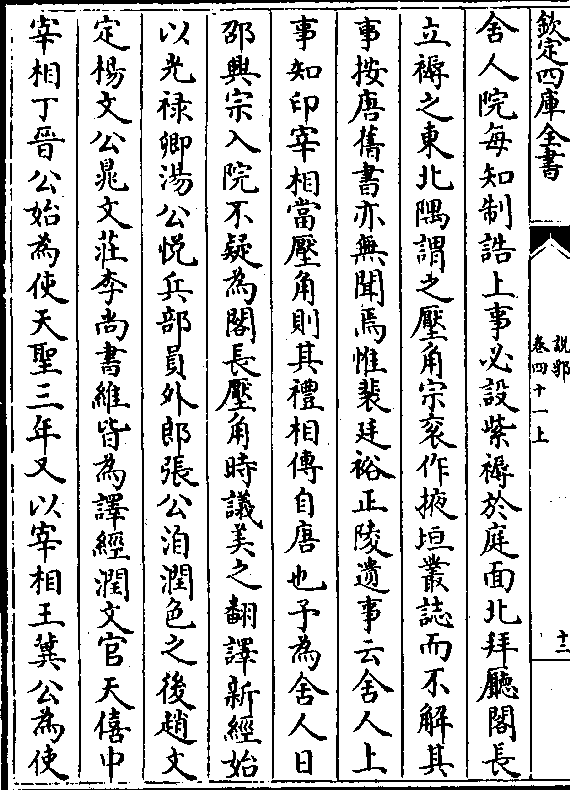 欽定四庫全書
說郛
卷四十一上
十三
舍人院每知制誥上事必設紫褥於庭面北拜廳閣長
立褥之東北隅謂之壓角宗衮作掖垣叢誌而不解其
事按唐舊書亦無聞焉惟裴廷裕正陵遺事云舍人上
事知印宰相當壓角則其禮相傳自唐也予為舍人日
邵興宗入院不疑為閣長壓角時議美之翻譯新經始
以光祿卿湯公悅兵部員外郎張公洎潤色之後趙文
定楊文公晁文莊李尚書維皆為譯經潤文官天僖中
宰相丁晉公始為使天聖三年又以宰相王冀公為使